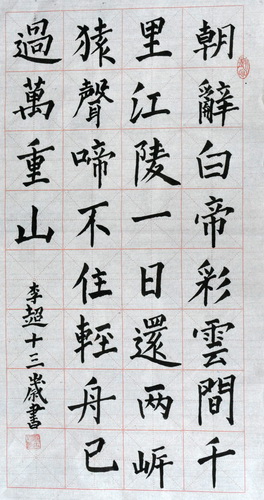 朝辭白帝彩雲間千
里江陵一日還两岍
猿聲啼不住輕舟已
過萬重山
李超十三歲書